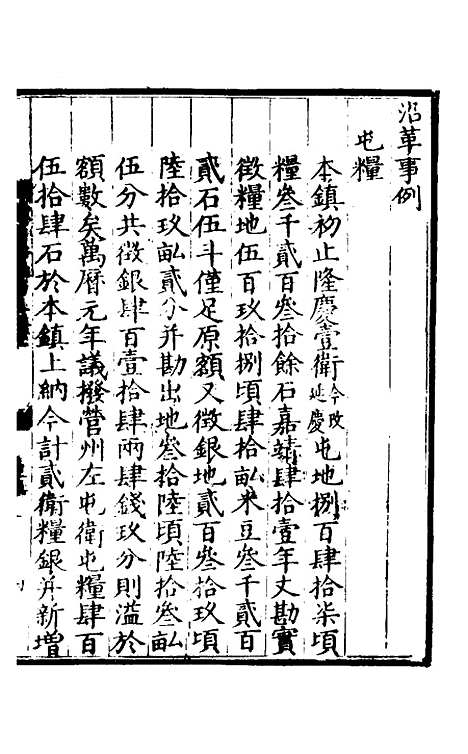 沿革事例
屯糧
本鎮初止隆慶壹衛今改延慶屯地捌百肆拾柒頃
糧叄千貳百叄拾餘石嘉靖肆拾壹年丈勘實
徵糧地伍百玖拾捌頃肆拾畝米豆叄千貳百
貳石伍斗僅足原額又徵銀地貳百叄拾玖頃
陸拾玖畝貳分并勘出地叄拾陸頃陸拾叄畝
伍分共徵銀肆百壹拾肆兩肆錢玖分則溢於
額數矣萬曆元年議撥營州左屯衛屯糧肆百
伍拾肆石於本鎮上納今計貳衛糧銀并新增